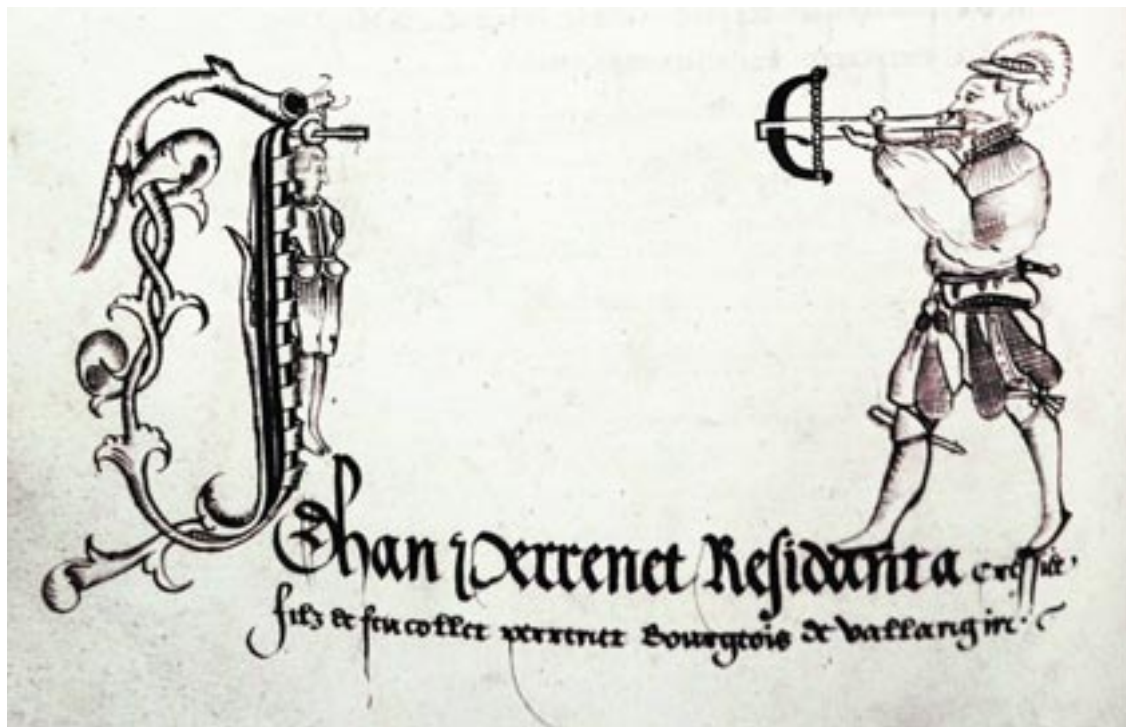 Jehan perrenet Residanta cressier
filz de feu collet perrenet Bourgeois de vallangin